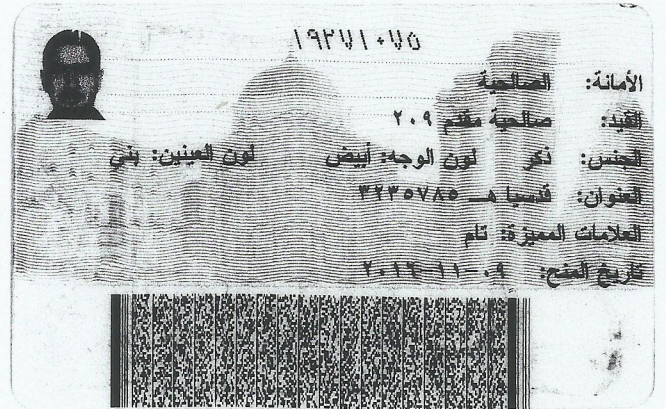 ١٩٢٧١٠٧٥
الأمانة: الصالحية
القيد: صالحية مقدم ٢٠٩
الجنس: ذكر لون الوجه: أبيض لون العينين: بني
العنوان: قدسيا هـ ٣٢٣٥٧٨٥
العلامات المميزة: تام
تاريخ المنح: ٠٩-١١-٢٠١٢